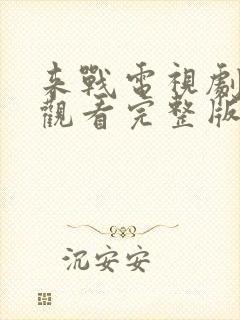 來戰電視劇
觀看完整版
沉安安